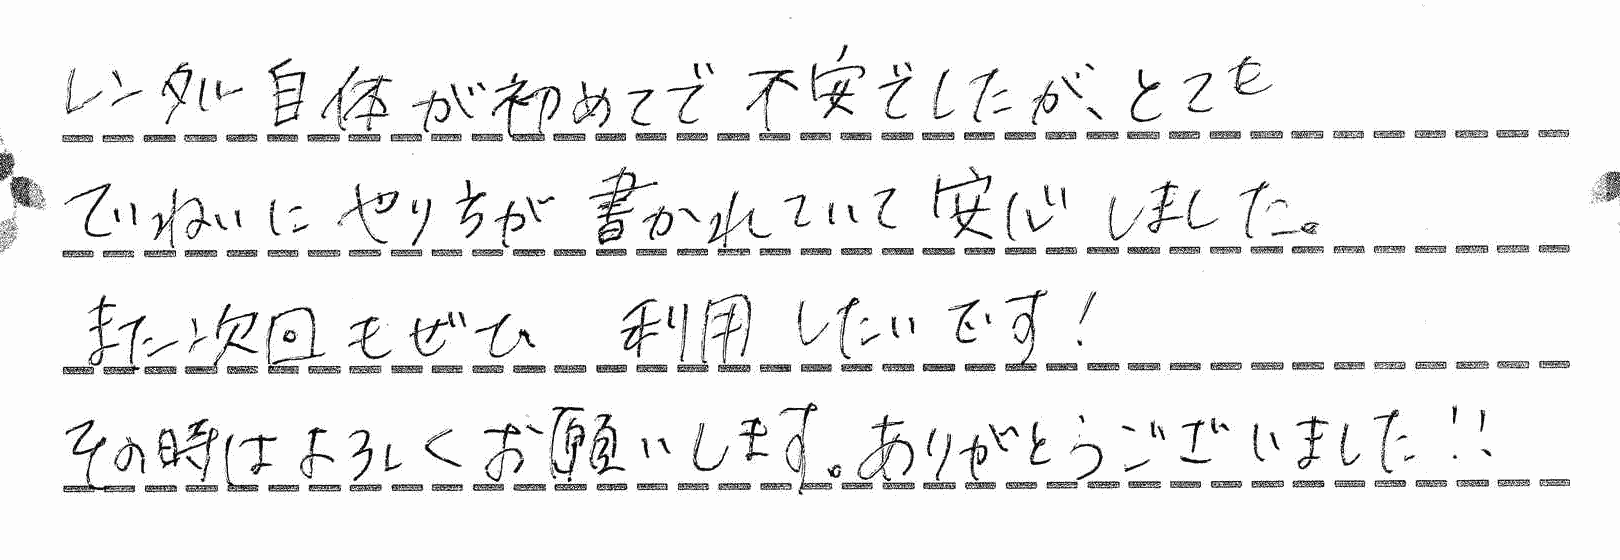 レンタル自体が初めてで不安でしたが、とても
ていねいにやり方が書かれていて安心しました。
また次回もぜひ利用したいです！
その時はよろしくお願いします。ありがとうございました!!